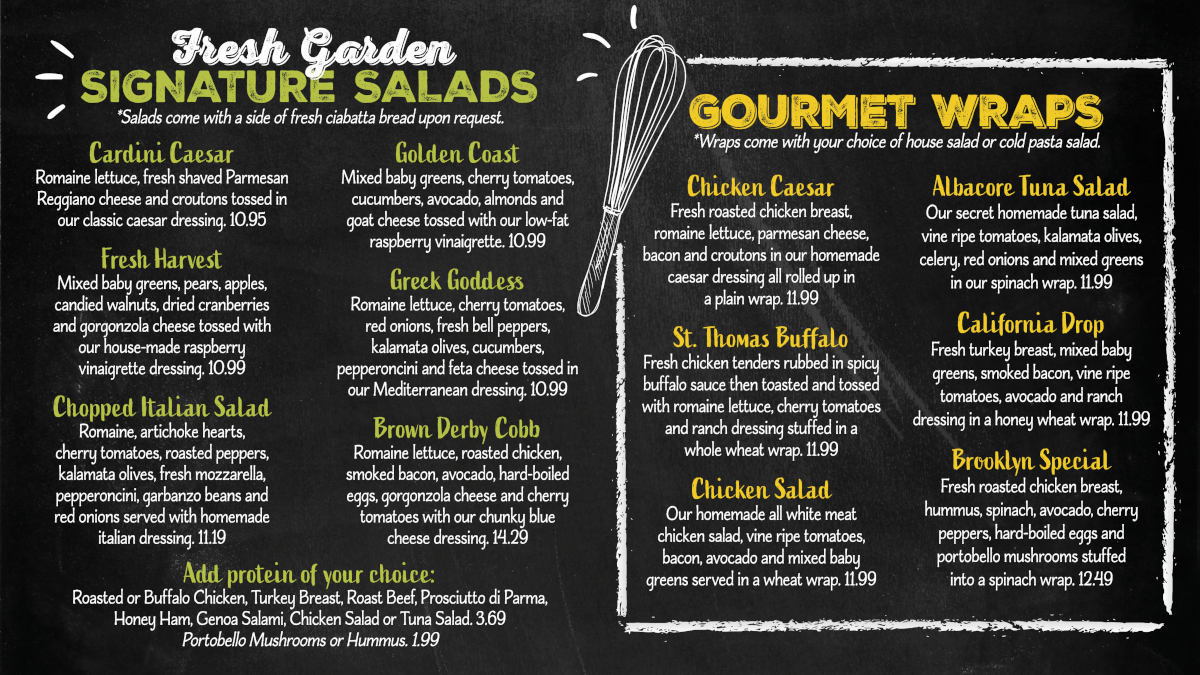 Fresh Garden
SIGNATURE SALADS
*Salads come with a side of fresh ciabatta bread upon request.
Cardini Caesar
Romaine lettuce, fresh shaved Parmesan
Reggiano cheese and croutons tossed in
our classic caesar dressing. 10.95
Fresh Harvest
Mixed baby greens, pears, apples,
candied walnuts, dried cranberries
and gorgonzola cheese tossed with
our house-made raspberry
vinaigrette dressing. 10.99
Chopped Italian Salad
Romaine, artichoke hearts,
cherry tomatoes, roasted peppers,
kalamata olives, fresh mozzarella,
pepperoncini, garbanzo beans and
red onions served with homemade
italian dressing. 11.19
Golden Coast
Mixed baby greens, cherry tomatoes,
cucumbers, avocado, almonds and
goat cheese tossed with our low-fat
raspberry vinaigrette. 10.99
Greek Goddess
Romaine lettuce, cherry tomatoes,
red onions, fresh bell peppers,
kalamata olives, cucumbers,
pepperoncini and feta cheese tossed in
our Mediterranean dressing. 10.99
Brown Derby Cobb
Romaine lettuce, roasted chicken,
smoked bacon, avocado, hard-boiled
eggs, gorgonzola cheese and cherry
tomatoes with our chunky blue
cheese dressing. 14.29
Add protein of your choice:
Roasted or Buffalo Chicken, Turkey Breast, Roast Beef, Prosciutto di Parma,
Honey Ham, Genoa Salami, Chicken Salad or Tuna Salad. 3.69
Portobello Mushrooms or Hummus. 1.99
GOURMET WRAPS
*Wraps come with your choice of house salad or cold pasta salad.
Chicken Caesar
Fresh roasted chicken breast,
romaine lettuce, parmesan cheese,
bacon and croutons in our homemade
caesar dressing all rolled up in
a plain wrap. 11.99
St. Thomas Buffalo
Fresh chicken tenders rubbed in spicy
buffalo sauce then toasted and tossed
with romaine lettuce, cherry tomatoes
and ranch dressing stuffed in a
whole wheat wrap. 11.99
Chicken Salad
Our homemade all white meat
chicken salad, vine ripe tomatoes,
bacon, avocado and mixed baby
greens served in a wheat wrap. 11.99
Albacore Tuna Salad
Our secret homemade tuna salad,
vine ripe tomatoes, kalamata olives,
celery, red onions and mixed greens
in our spinach wrap. 11.99
California Drop
Fresh turkey breast, mixed baby
greens, smoked bacon, vine ripe
tomatoes, avocado and ranch
dressing in a honey wheat wrap. 11.99
Brooklyn Special
Fresh roasted chicken breast,
hummus, spinach, avocado, cherry
peppers, hard-boiled eggs and
portobello mushrooms stuffed
into a spinach wrap. 12.49